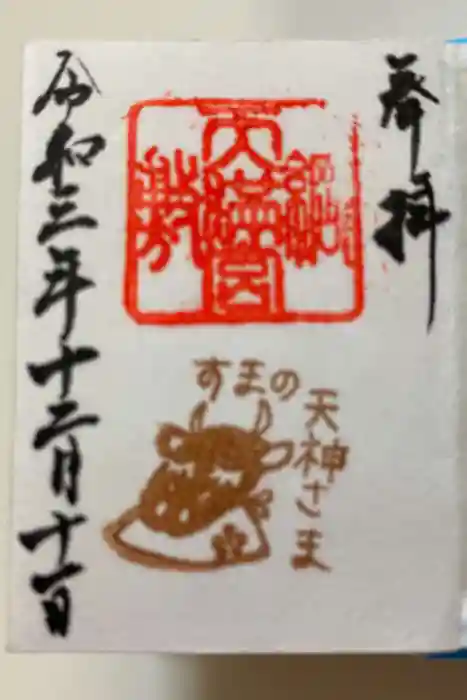 奉拝
天満宮
すまの
天神さま
令和三年十二月十一日